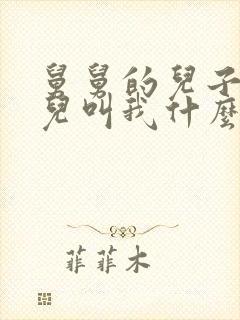 舅舅的兒子
兒叫我什麼
菲菲木